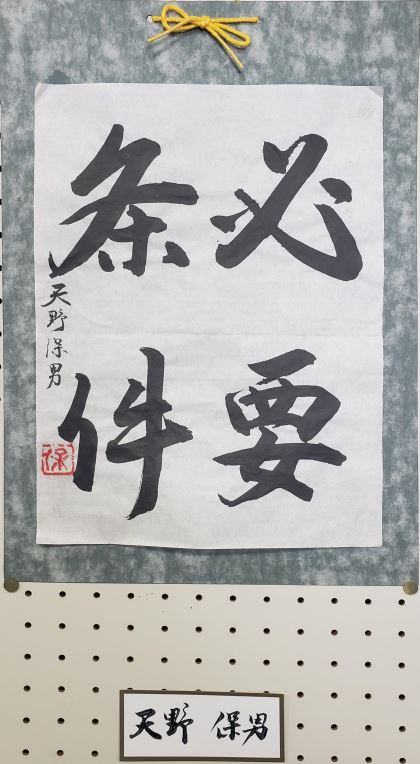 必要
条件
天野保男
保
天野 保男